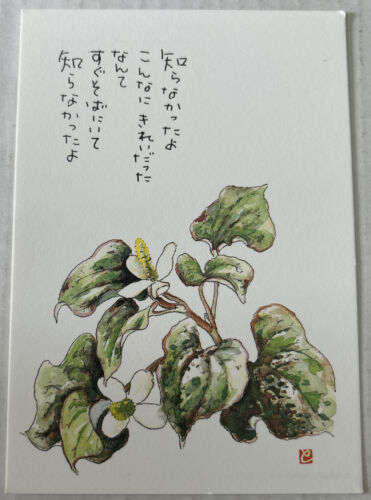 知らなかったよ
こんなにきれいだった
なんて
すぐそばにいて
知らなかったよ
と